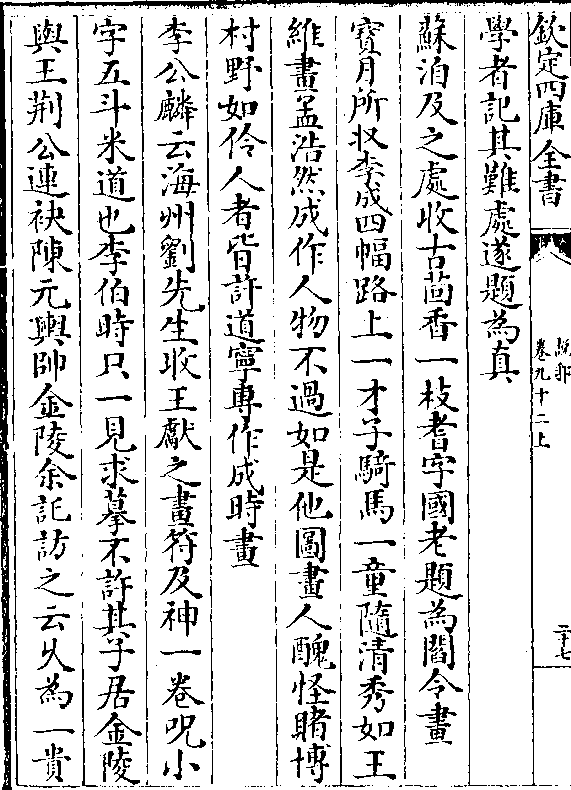 欽定四庫全書
說郛
卷九十二上
二十七
學者記其難處遂題為真
蘇洎及之處收古茴香一枝耆字國老題為閻令畫
寶月所收李成四幅路上一才子騎馬一童隨清秀如王
維畫孟浩然成作人物不過如是他圖畫人醜怪賭博
村野如伶人者皆許道寧專作成時畫
李公麟云海州劉先生收王獻之畫符及神一卷咒小
字五斗米道也李伯時只一見求摹不許其子居金陵
與王荆公連袂陳元輿帥金陵余託訪之云乆為一貴